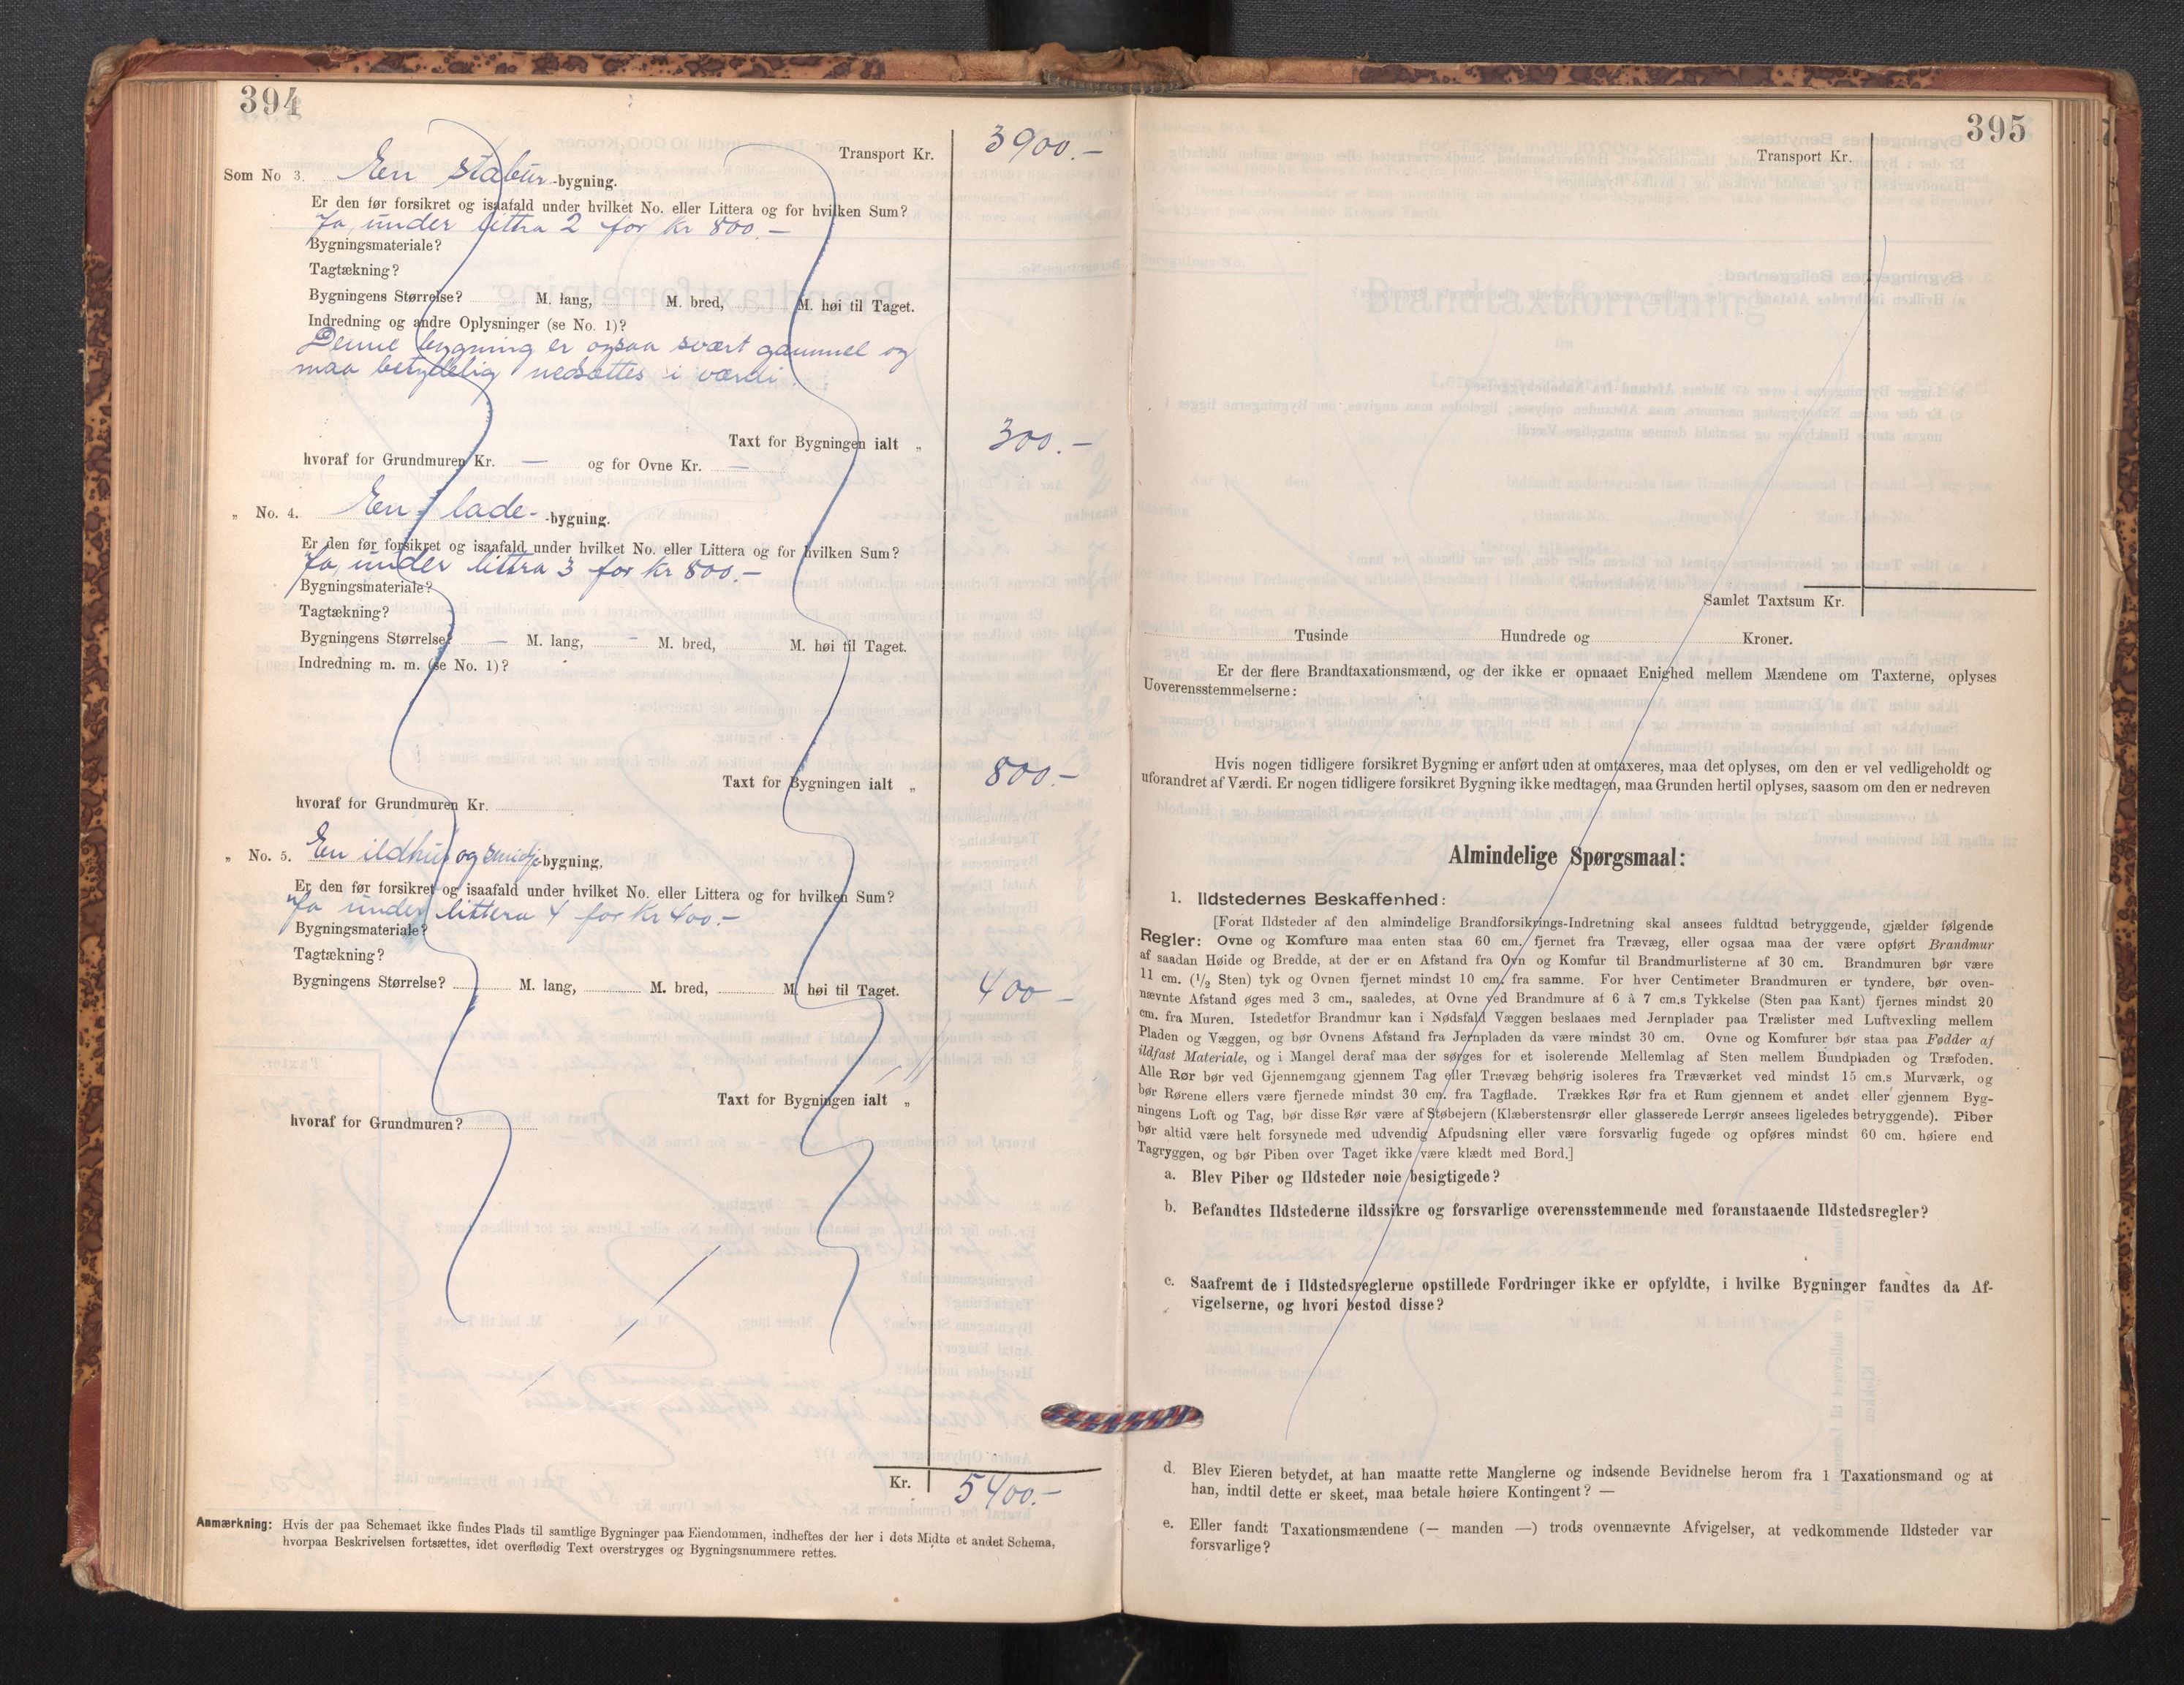 394
Transport Kr. 3900.-
Som No 3. En stabur -bygning.
Er den før forsikret og isaafald under hvilket No. eller Littera og for hvilken Sum?
Ja, under littra 2 for Kr 800.-
Bygningsmateriale?
Tagtækning?
Bygningens Størrelse? M. lang, M. bred, M. høi til Taget.
Indredning og andre Oplysninger (se No. 1)?
Denne bygning er ogsaa svært gammel og
maa betydelig nedsættes i værdi.
Taxt for Bygningen ialt „ 300.-
hvoraf for Grundmuren Kr. — og for Ovne Kr. —
„ No. 4. En lade- -bygning.
Er den før forsikret og isaafald under hvilket No. eller Littera og for hvilken Sum?
Ja, under littra 3 for Kr 800.-
Bygningsmateriale?
Tagtækning?
Bygningens Størrelse? — M. lang, — M. bred, M. høi til Taget.
Indredning m. m. (se No. 1)?
Taxt for Bygningen ialt „ 800.-
hvoraf for Grundmuren Kr.
„ No. 5. En ildhus og smidje -bygning,
Er den før forsikret og isaafald under hvilket No. eller Littera og for hvilken Sum?
Ja under littera 4 for Kr 400.-
Bygningsmateriale?
Tagtækning?
Bygningens Størrelse? M. lang, M. bred, M. høi til Taget. 400 -
Taxt for Bygningen ialt „
hvoraf for Grundmuren?
Kr. 5400.-
Anmærkning: Hvis der paa Schemaet ikke findes Plads til samtlige Bygninger paa Eiendommen, indheftes der her i dets Midte et andet Schema,
hvorpaa Beskrivelsen fortsættes, idet overflødig Text overstryges og Bygningsnummere rettes.
395
Transport Kr.
Samlet Taxtsum Kr.
Tusinde Hundrede og Kroner.
Er der flere Brandtaxationsmænd, og der ikke er opnaaet Enighed mellem Mændene om Taxterne, oplyses
Uoverensstemmelserne:
Hvis nogen tidligere forsikret Bygning er anført uden at omtaxeres, maa det oplyses, om den er vel vedligeholdt og
uforandret af Værdi. Er nogen tidligere forsikret Bygning ikke medtagen, maa Grunden hertil oplyses, saasom om den er nedreven
Almindelige Spørgsmaal:
1. Ildstedernes Beskaffenhed:
[Forat Ildsteder af den almindelige Brandforsikrings-Indretning skal ansees fuldtud betryggende, gjælder følgende
Regler: Ovne og Komfure maa enten staa 60 cm. fjernet fra Trævæg, eller ogsaa maa der være opført Brandmur
af saadan Høide og Bredde, at der er en Afstand fra Ovn og Komfur til Brandmurlisterne af 30 cm. Brandmuren bør være
11 cm. (1/2 Sten) tyk og Ovnen fjernet mindst 10 cm. fra samme. For hver Centimeter Brandmuren er tyndere, bør oven-
nævnte Afstand øges med 3 cm., saaledes, at Ovne ved Brandmure af 6 à 7 cm.s Tykkelse (Sten paa Kant) fjernes mindst 20
cm. fra Muren. Istedetfor Brandmur kan i Nødsfald Væggen beslaaes med Jernplader paa Trælister med Luftvexling mellem
Pladen og Væggen, og bør Ovnens Afstand fra Jernpladen da være mindst 30 cm. Ovne og Komfurer bør staa paa Fødder af
ildfast Materiale, og i Mangel deraf maa der sørges for et isolerende Mellemlag af Sten mellem Bundpladen og Træfoden.
Alle Rør bør ved Gjennemgang gjennem Tag eller Trævæg behørig isoleres fra Træværket ved mindst 15 cm.s Murværk, og
bør Rørene ellers være fjernede mindst 30 cm. fra Tagflade. Trækkes Rør fra et Rum gjennem et andet eller gjennem Byg-
ningens Loft og Tag, bør disse Rør være af Støbejern (Klæberstensrør eller glasserede Lerrør ansees ligeledes betryggende). Piber
bør altid være helt forsynede med udvendig Afpudsning eller være forsvarlig fugede og opføres mindst 60 cm. høiere end
Tagryggen, og bør Piben over Taget ikke være klædt med Bord.]
a. Blev Piber og Ildsteder nøie besigtigede?
b. Befandtes Ildstederne ildssikre og forsvarlige overensstemmende med foranstaaende Ildstedsregler?
c. Saafremt de i Ildstedsreglerne opstillede Fordringer ikke er opfyldte, i hvilke Bygninger fandtes da Af-
vigelserne, og hvori bestod disse?
d. Blev Eieren betydet, at han maatte rette Manglerne og indsende Bevidnelse herom fra 1 Taxationsmand og at
han, indtil dette er skeet, maa betale høiere Kontingent? —
e. Eller fandt Taxationsmændene (— manden —) trods ovennævnte Afvigelser, at vedkommende Ildsteder var
forsvarlige?